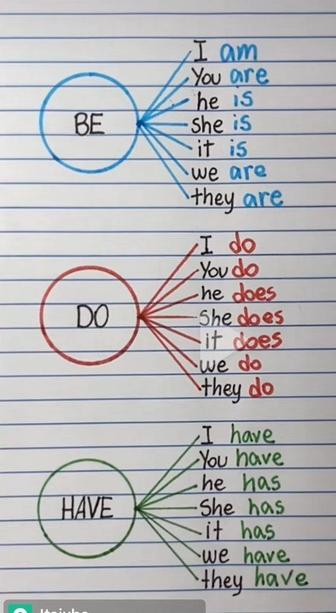 BE
I am
You are
he is
She is
it is
we are
they are
DO
I do
You do
he does
She does
it does
we do
they do
HAVE
I have
You have
he has
She has
it has
we have
they have